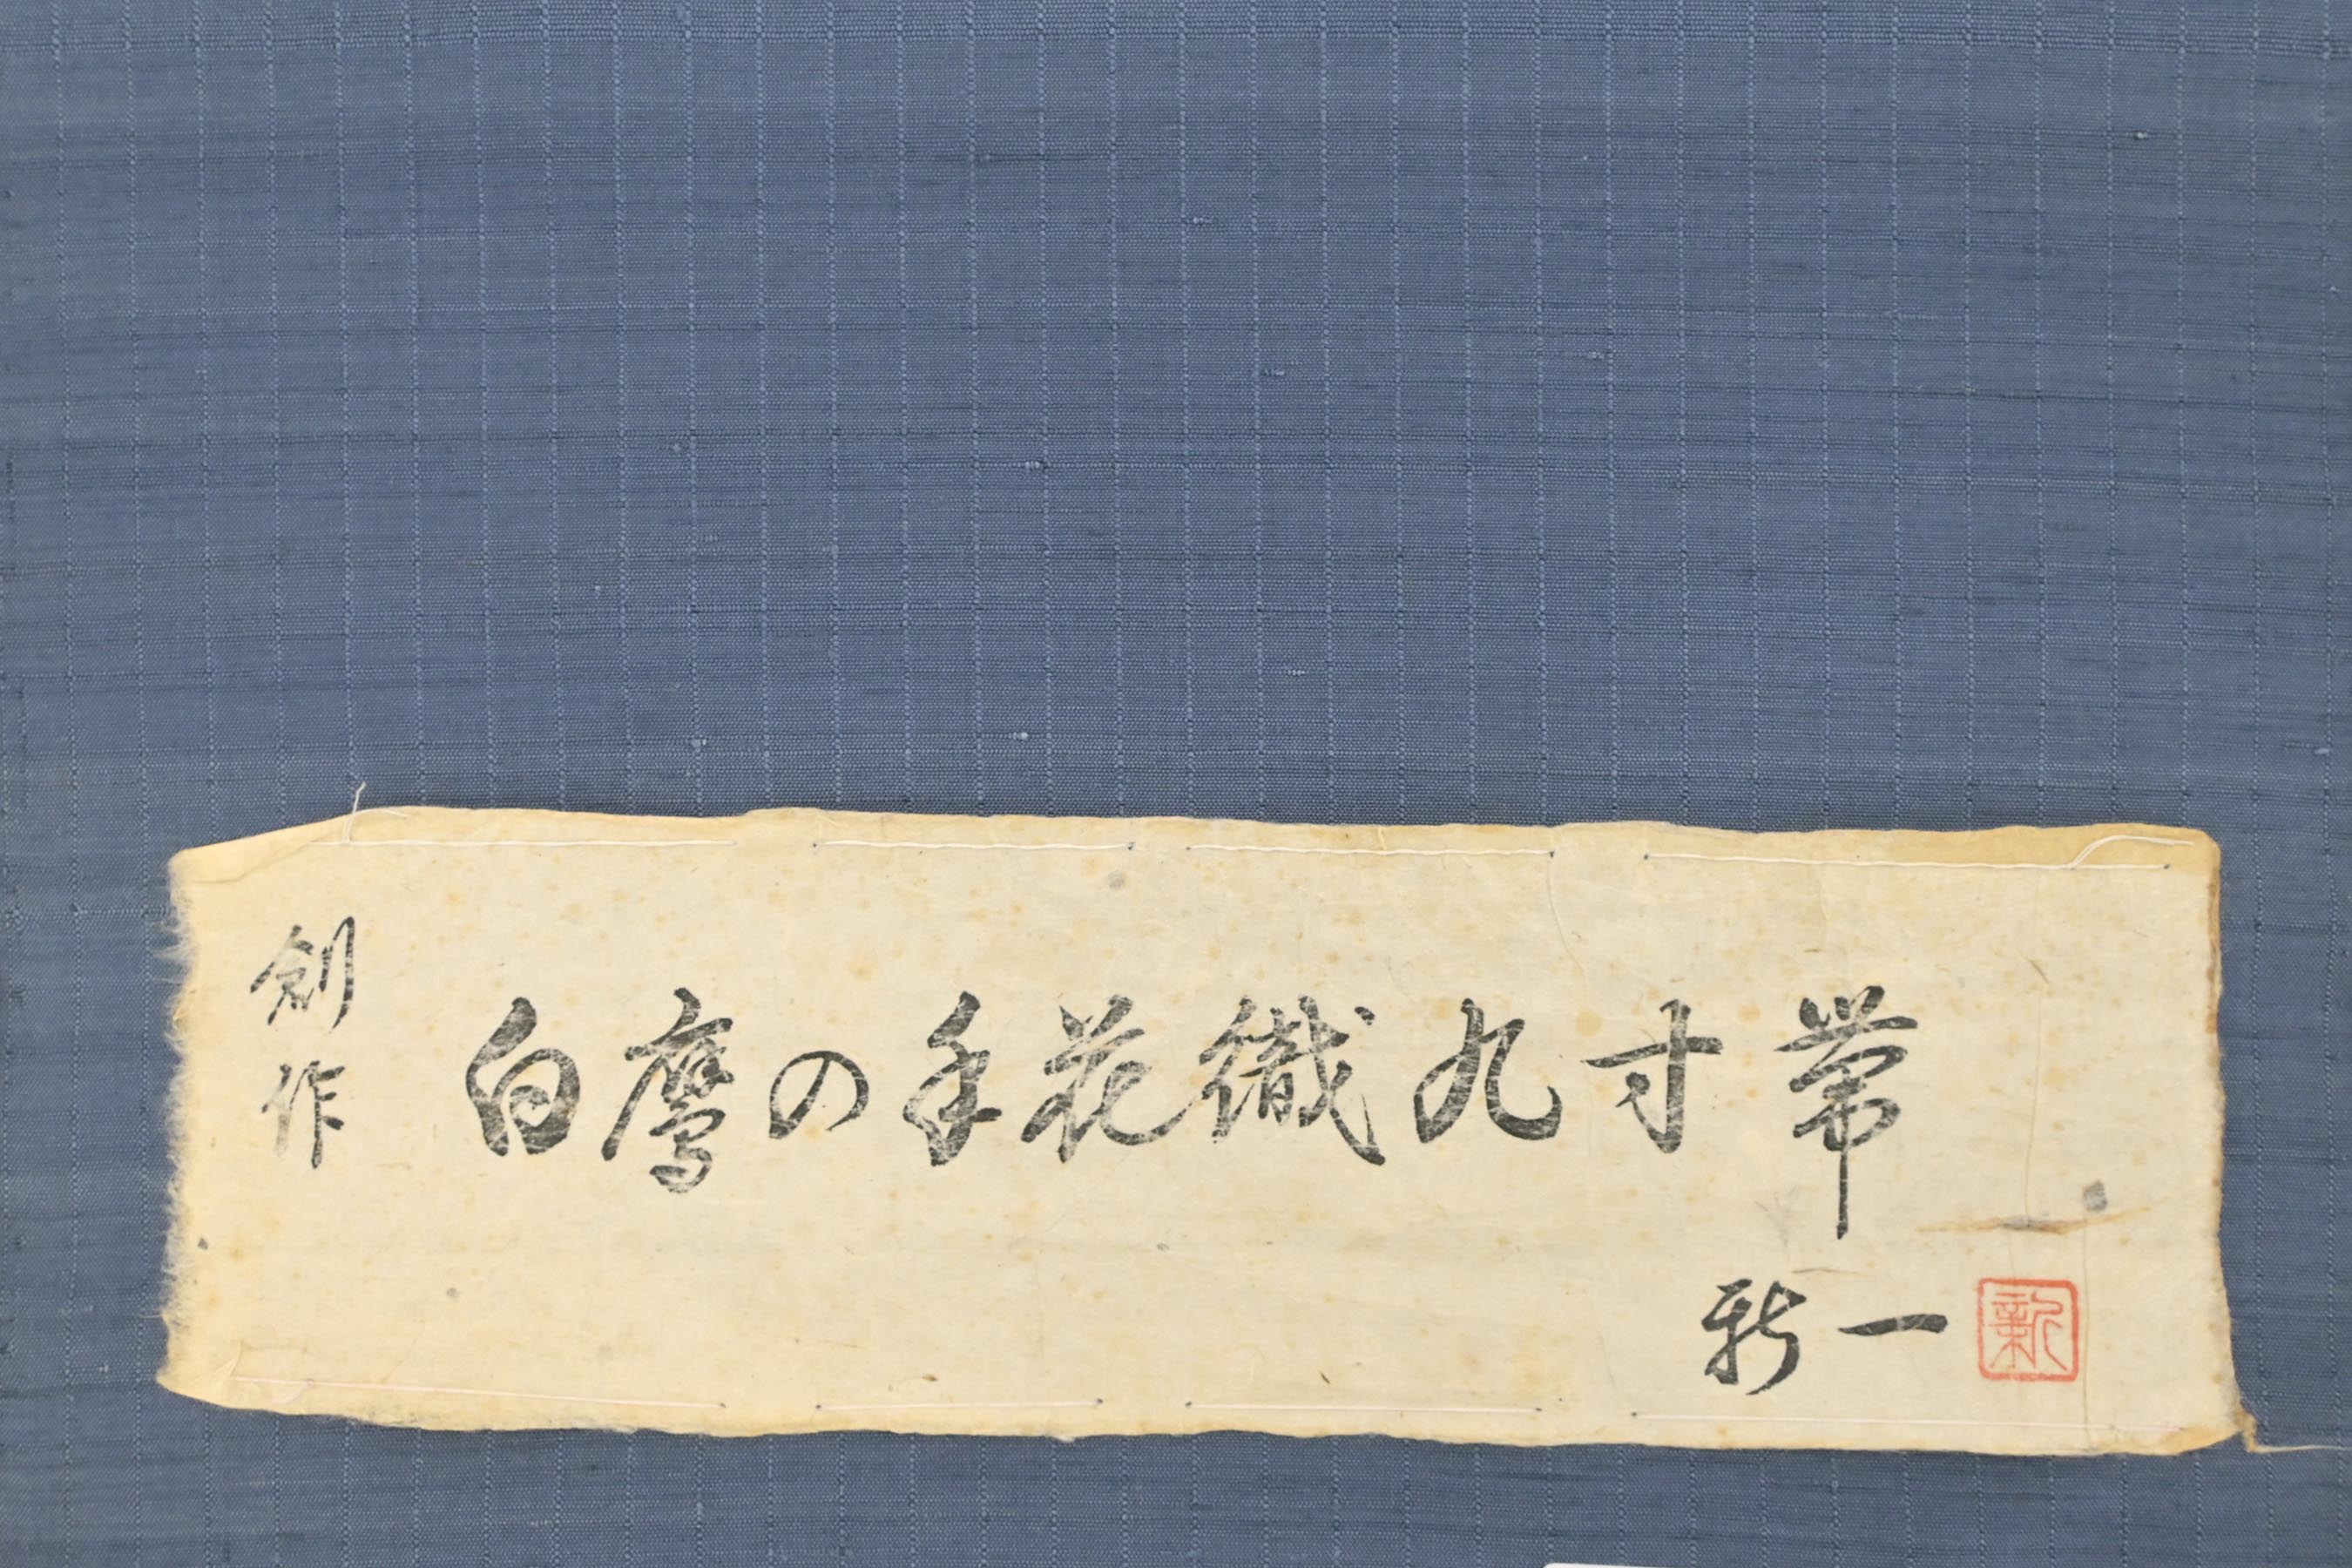 創作
白鷹の手花織九寸帯
新一
新